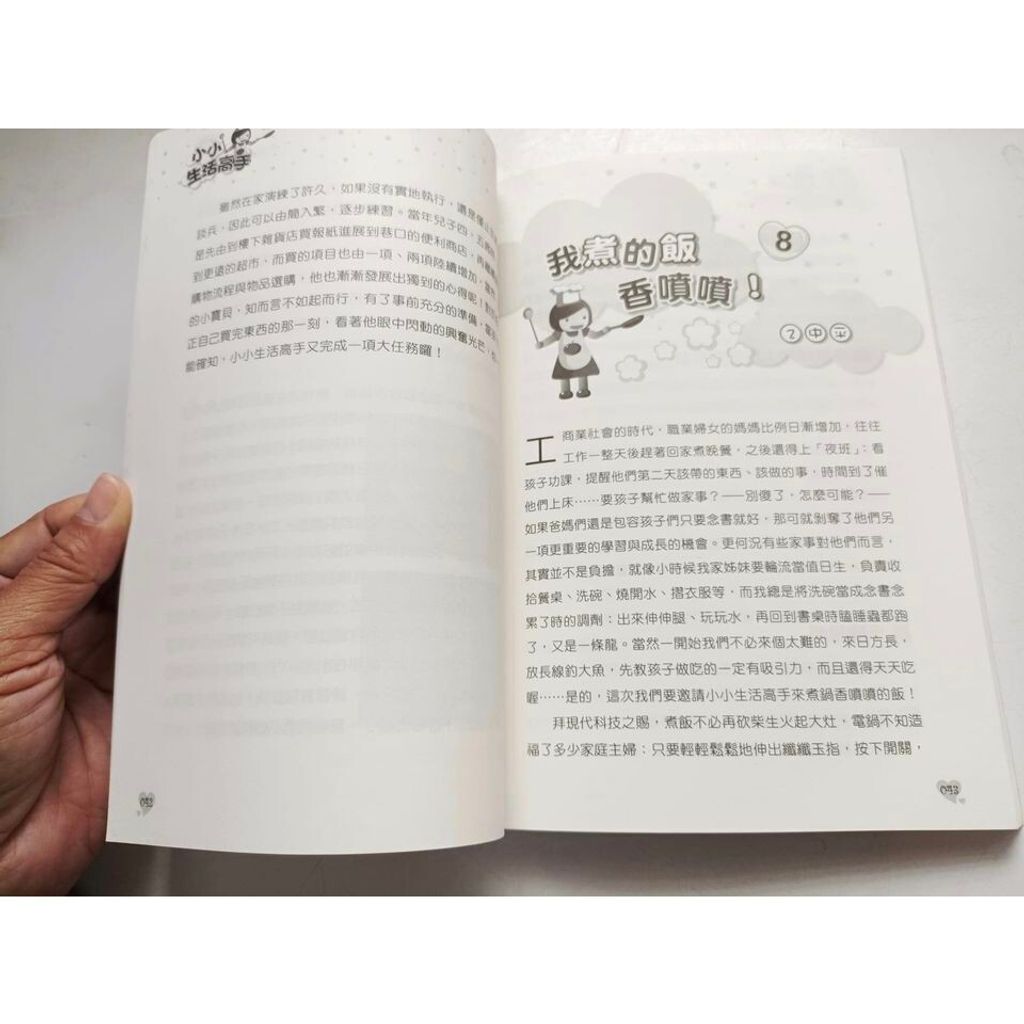 小小
生活高手
雖然在家演練了許久，如果沒有實地執行，還是
談兵，因此可以由簡入繁，逐步練習。當年兒子四、五
是先由到樓下雜貨店買報紙進展到巷口的便利商店，再
到更遠的超市，而買的項目也由一項、兩項陸續增加，
購物流程與物品選購，他也漸漸發展出獨到的心得呢！
的小寶貝，知而言不如起而行，有了事前充分的準備，
正自己買完東西的那一刻，看著他眼中閃動的興奮光芒，
能確知，小小生活高手又完成一項大任務囉！
8
我煮的飯
香噴噴！
工商業社會的時代，職業婦女的媽媽比例日漸增加，往往
工作一整天後趕著回家煮晚餐，之後還得上「夜班」：看
孩子功課，提醒他們第二天該帶的東西、該做的事，時間到了催
他們上床……要孩子幫忙做家事？——別傻了，怎麼可能？——
如果爸媽們還是包容孩子們只要念書就好，那可就剝奪了他們另
一項更重要的學習與成長的機會。更何況有些家事對他們而言，
其實並不是負擔，就像小時候我家姊妹要輪流當值日生，負責收
拾餐桌、洗碗、燒開水、摺衣服等，而我總是將洗碗當成念書念
累了時的調劑：出來伸伸腿、玩玩水，再回到書桌時瞌睡蟲都跑
了，又是一條龍。當然一開始我們不必來個太難的，來日方長，
放長線釣大魚，先教孩子做吃的一定有吸引力，而且還得天天吃
喔……是的，這次我們要邀請小小生活高手來煮鍋香噴噴的飯！
拜現代科技之賜，煮飯不必再砍柴生火起大灶，電鍋不知造
福了多少家庭主婦：只要輕輕鬆鬆地伸出纖纖玉指，按下開關，
043